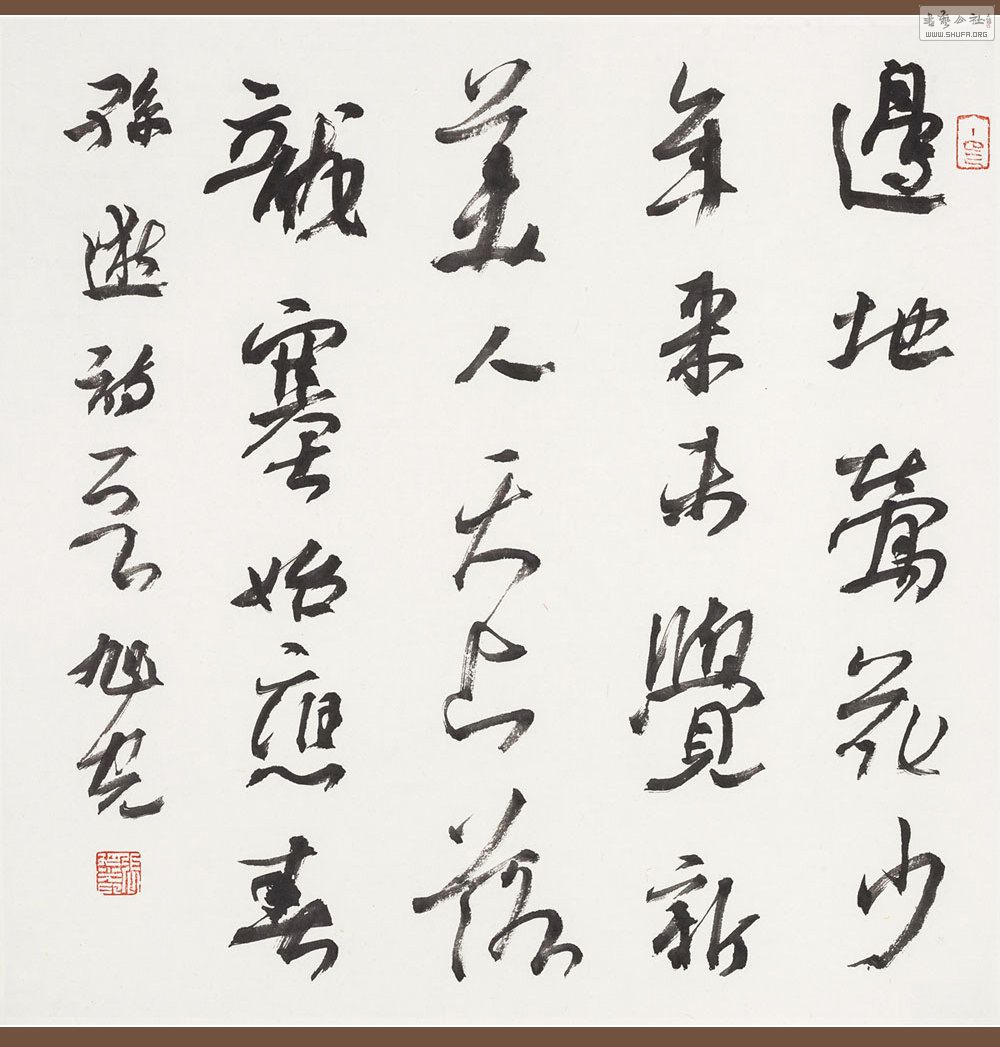 書藝公社
WWW.SHUFA.ORG
邊地鶯花少
年来未覺新
美人天上落
龍塞始應春
孫逖詩 旭光